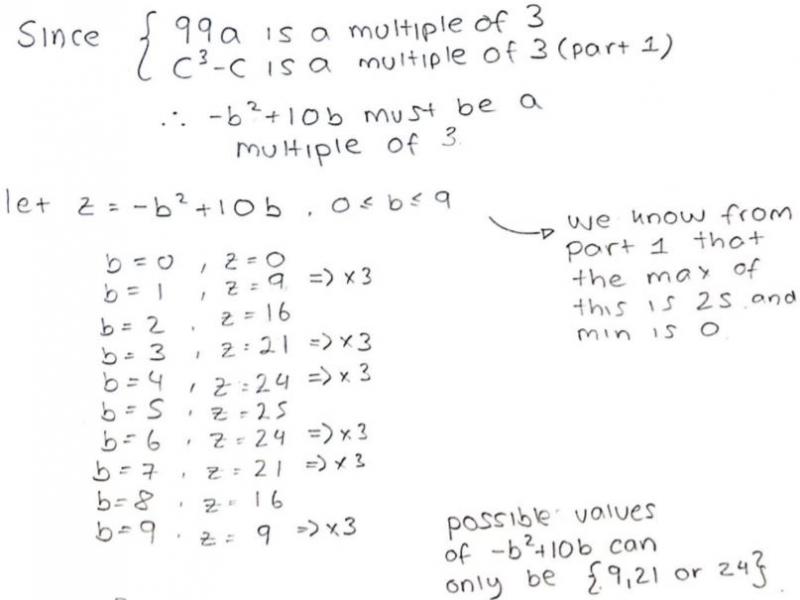 Since { 99a is a multiple of 3
c³-c is a multiple of 3 (part 1)
∴ -b²+10b must be a
multiple of 3
let z = -b²+10b , 0 ≤ b ≤ 9
we know from
part 1 that
the max of
this is 25 and
min is 0
b = 0 , z = 0
b = 1 , z = 9 => x3
b = 2 , z = 16
b = 3 , z = 21 => x3
b = 4 , z = 24 => x3
b = 5 , z = 25
b = 6 , z = 24 => x3
b = 7 , z = 21 => x3
b = 8 , z = 16
b = 9 , z = 9 => x3
possible values
of -b²+10b can
only be {9,21 or 24}